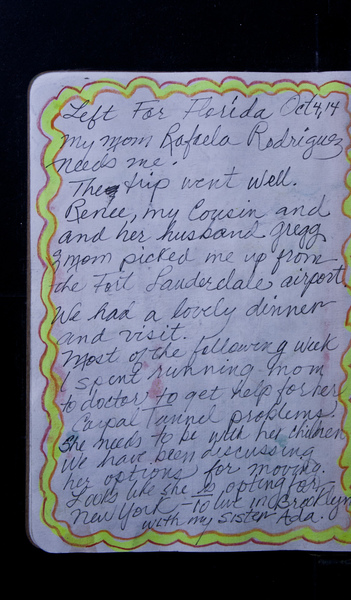 Left For Florida Oct 4, 14
My mom Rafaela Rodriguez
needs me.
The trip went well.
Renee, my Cousin and
and her husband gregg
& mom picked me up from
the Fort Lauderdale airport.
We had a lovely dinner
and visit.
Most of the following week
I spent running mom
to doctors to get help for her
Carpal Tannel problems.
She needs to be with her children
We have been discussing
her options for moving.
Looks like she is opting for
New York - to live in Brooklyn
with my Sister Ada.